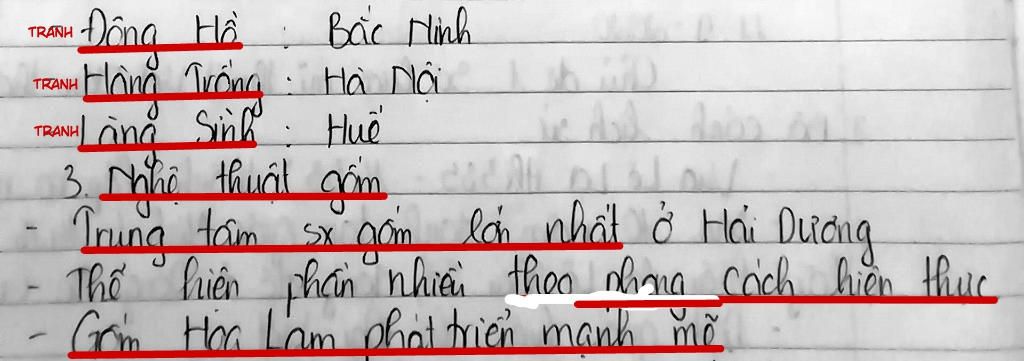 TRANH Đông Hồ : Bắc Ninh
TRANH Hàng Trống : Hà Nội
TRANH Làng Sình : Huế
3. Nghệ thuật gốm
- Trung tâm sx gốm lớn nhất ở Hải Dương
- Thể hiện phần nhiều theo phong cách hiện thực
- Gốm Hoa Lam phát triển mạnh mẽ